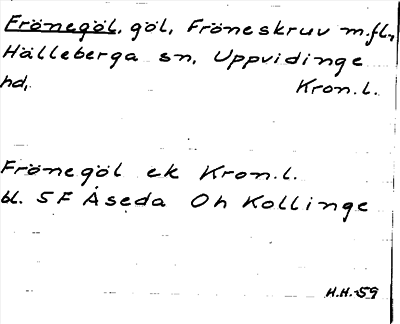 Frönegöl, göl, Fröneskruv m.fl.,
Hälleberga sn, Uppvidinge
hd, Kron.l.
Frönegöl ek Kron.l.
bl. 5F Åseda Oh Kollinge
H.H.-59